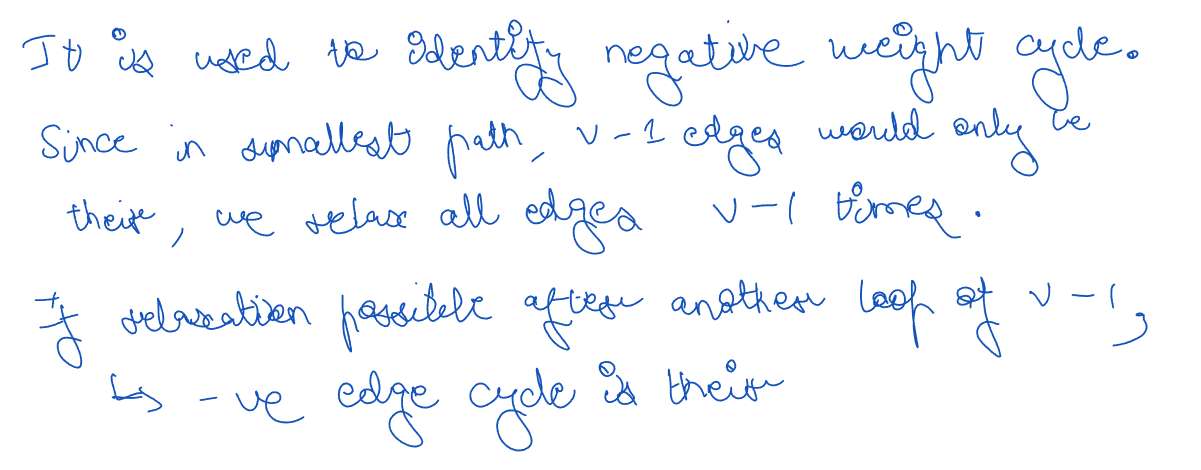 It is used to identify negative weight cycle.
Since in smallest path, v-1 edges would only be
their, we relax all edges v-1 times.
If relaxation possible after another loop of v-1,
↳ -ve edge cycle is their